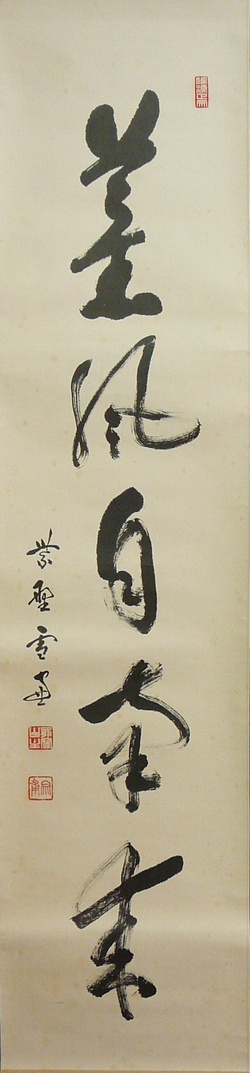 薫風自南来
紫野雪窓